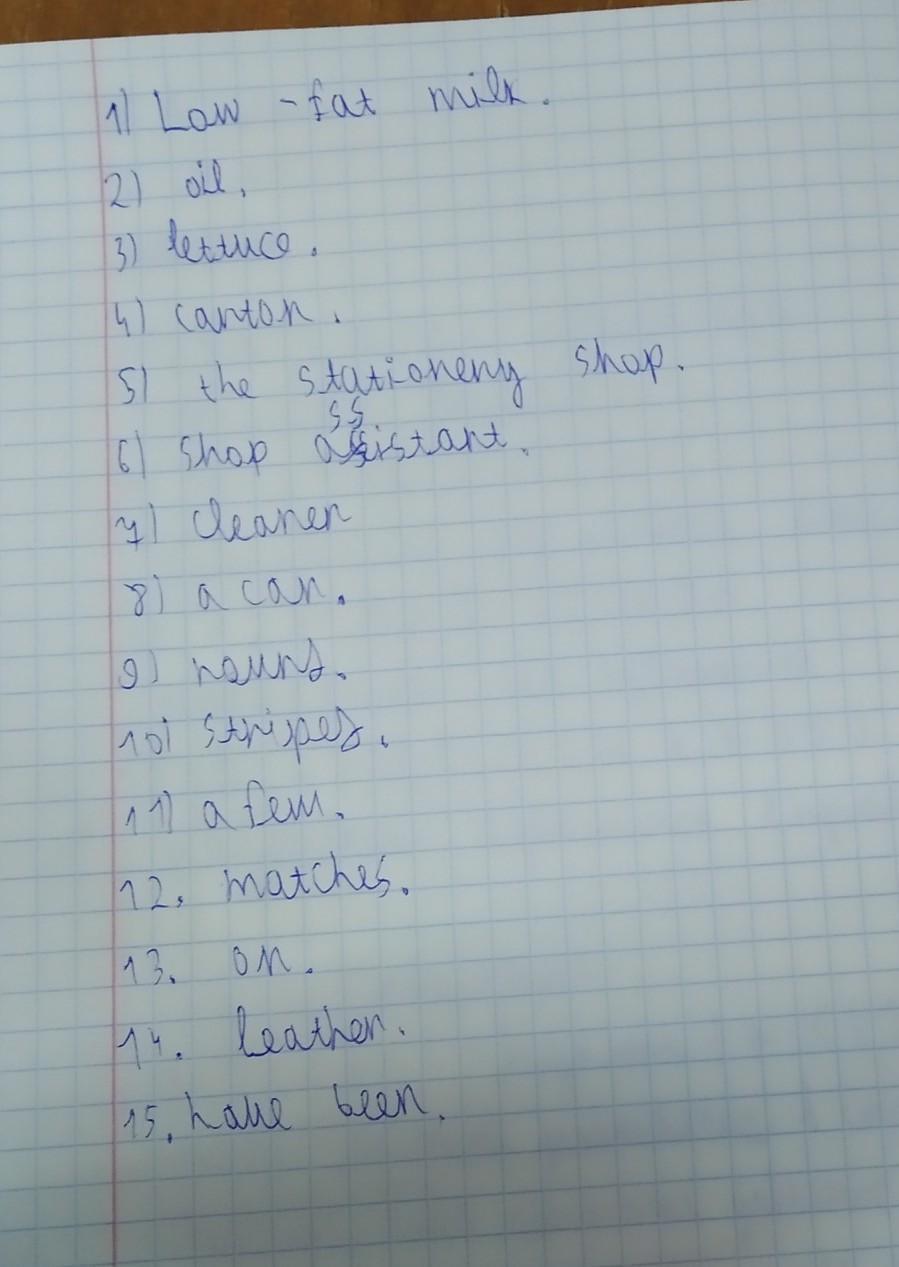 1) Low-fat milk.
2) oil.
3) lettuce.
4) carton.
5) the stationery shop.
6) shop assistant.
7) cleaner
8) a can.
9) round.
10) striped.
11) a few.
12. matches.
13. on.
14. leather.
15. have been.